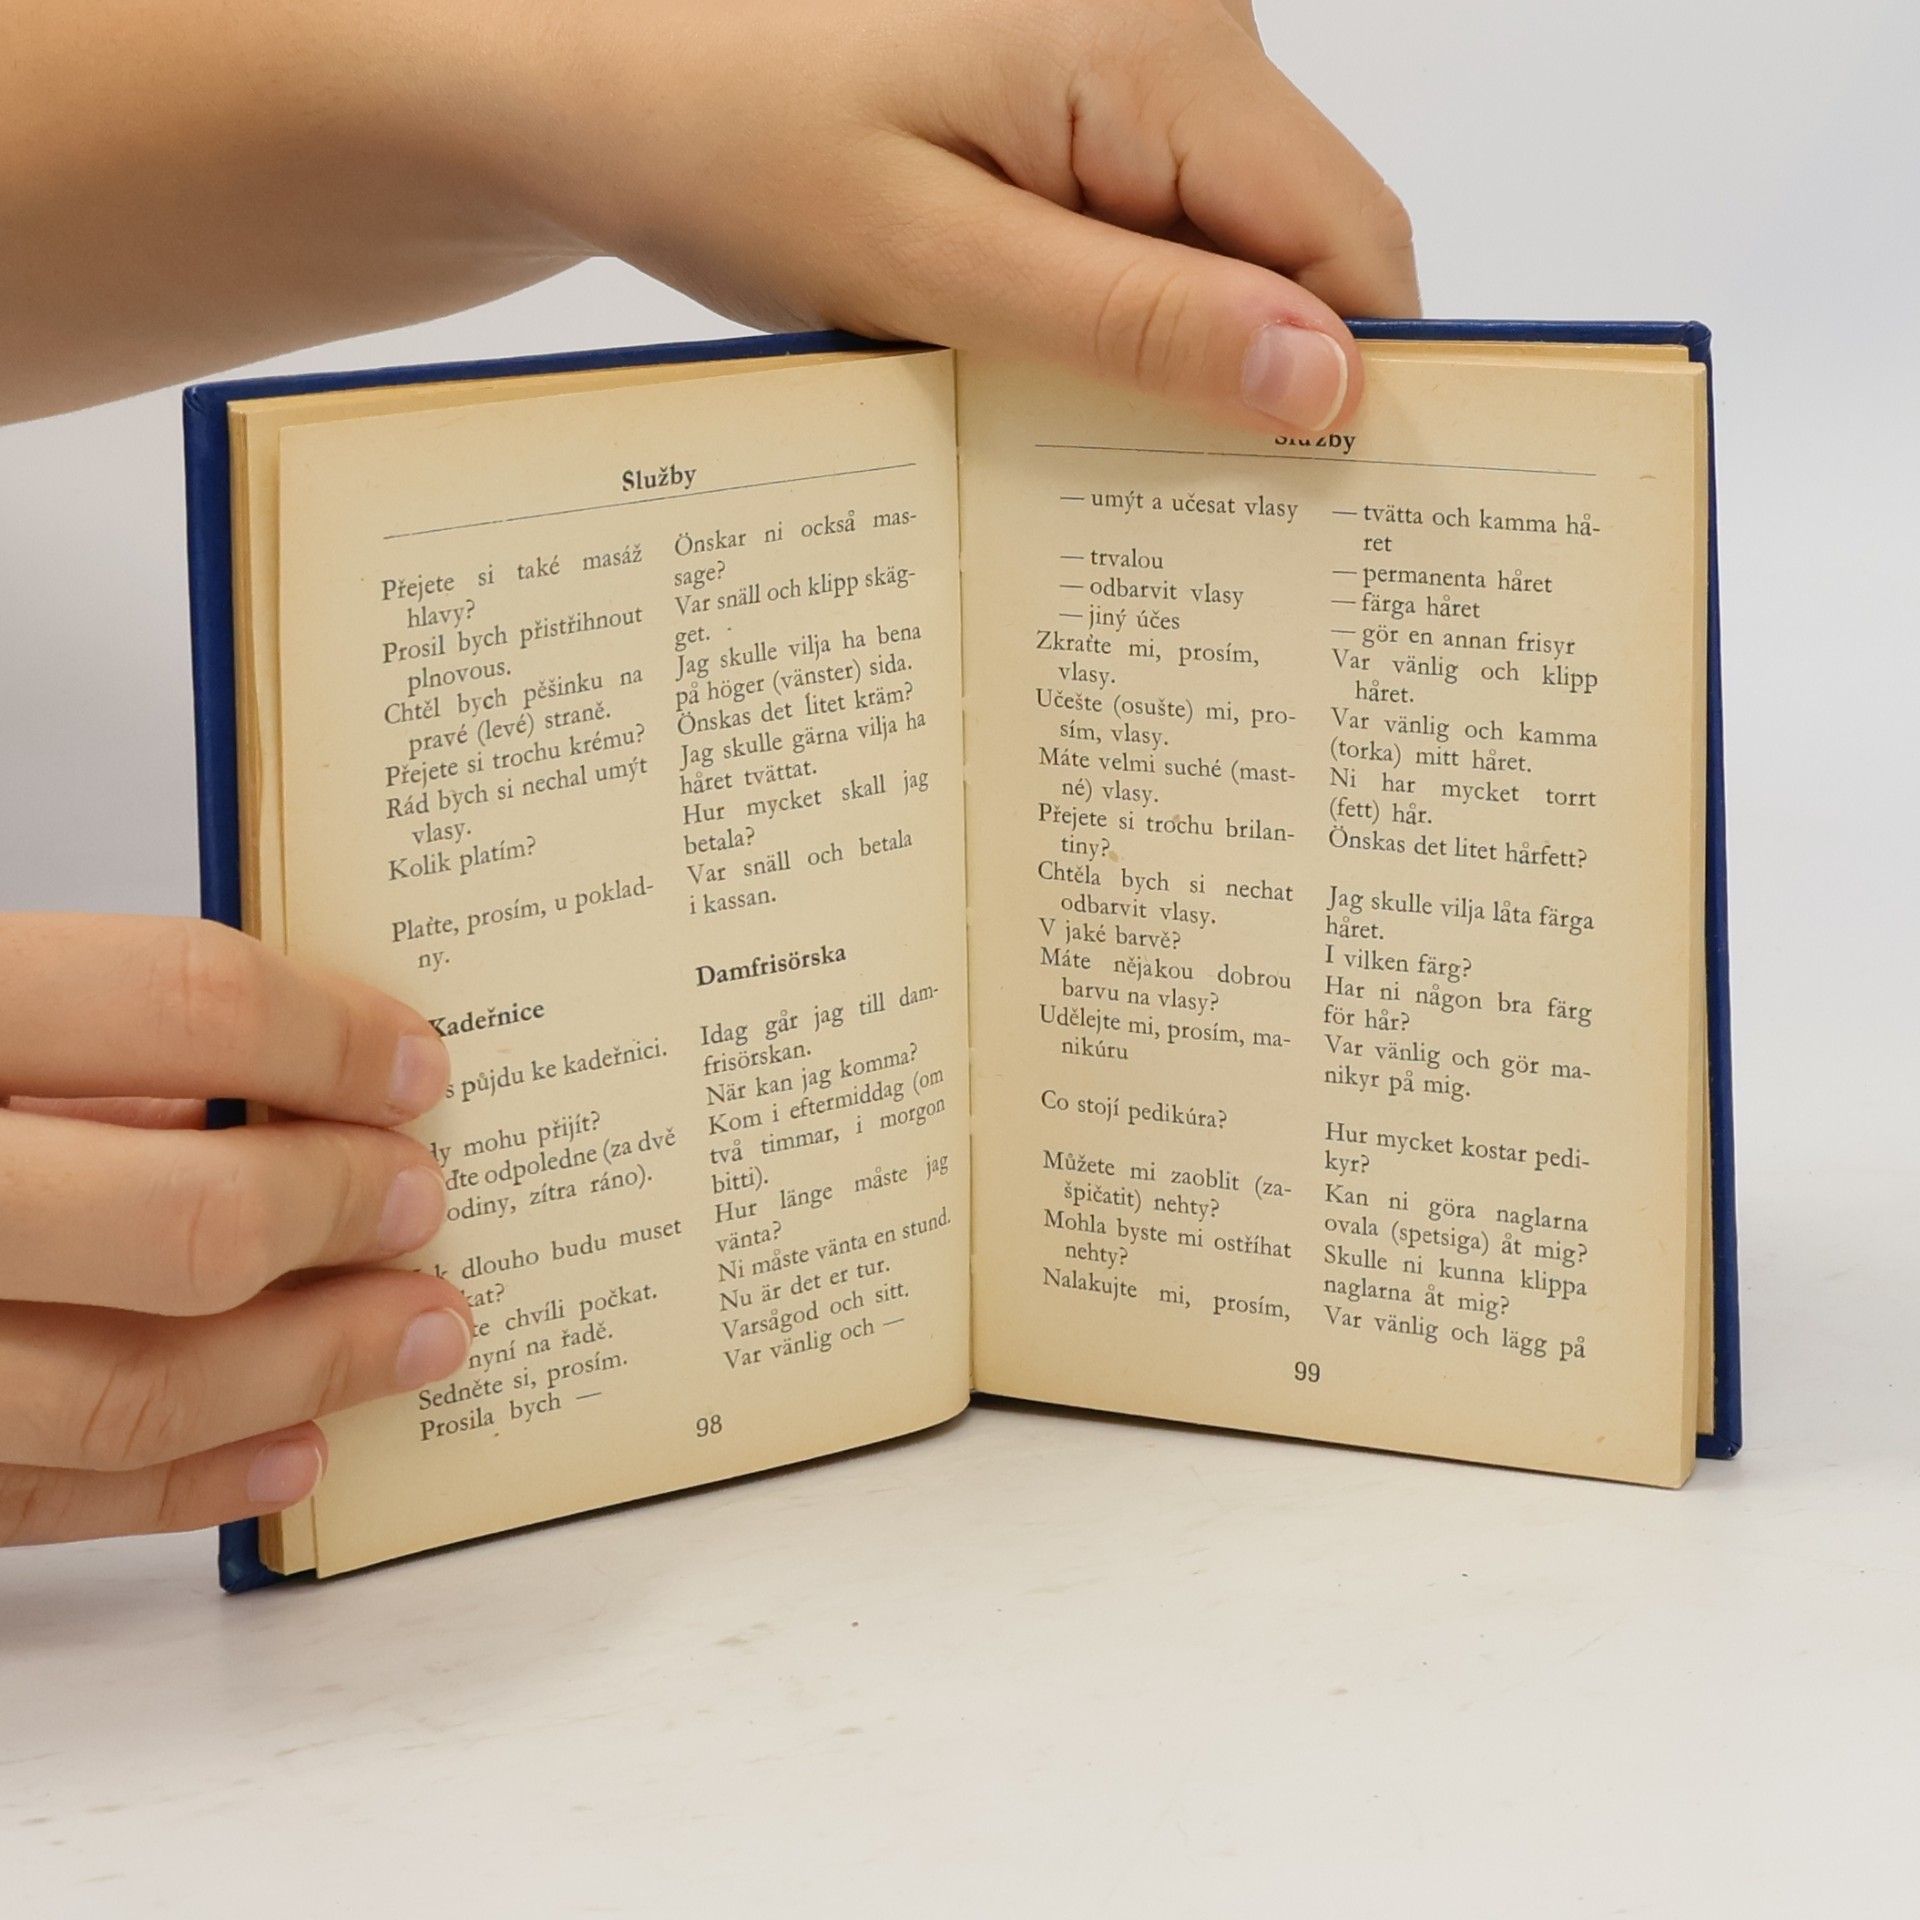 Služby
Přejete si také masáž
hlavy?
Prosil bych přistřihnout
plnovous.
Chtěl bych pěšinku na
pravé (levé) straně.
Přejete si trochu krému?
Rád bych si nechal umýt
vlasy.
Kolik platím?
Plaťte, prosím, u poklad-
ny.
Kadeřnice
půjdu ke kadeřnici.
mohu přijít?
odpoledne (za dvě
odiny, zítra ráno).
dlouho budu muset
chvíli počkat.
nyní na řadě.
Sedněte si, prosím.
Prosila bych —
Önskar ni också mas-
sage?
Var snäll och klipp skäg-
get.
Jag skulle vilja ha bena
på höger (vänster) sida.
Önskas det litet kräm?
Jag skulle gärna vilja ha
håret tvättat.
Hur mycket skall jag
betala?
Var snäll och betala
i kassan.
Damfrisörska
Idag går jag till dam-
frisörskan.
När kan jag komma?
Kom i eftermiddag (om
två timmar, i morgon
bitti).
Hur länge måste jag
vänta?
Ni måste vänta en stund.
Nu är det er tur.
Varsågod och sitt.
Var vänlig och —
98
Služby
— umýt a učesat vlasy
— trvalou
— odbarvit vlasy
— jiný účes
Zkraťte mi, prosím,
vlasy.
Učešte (osušte) mi, pro-
sím, vlasy.
Máte velmi suché (mast-
né) vlasy.
Přejete si trochu brilan-
tiny?
Chtěla bych si nechat
odbarvit vlasy.
V jaké barvě?
Máte nějakou dobrou
barvu na vlasy?
Udělejte mi, prosím, ma-
nikúru
Co stojí pedikúra?
Můžete mi zaoblit (za-
špičatit) nehty?
Mohla byste mi ostříhat
nehty?
Nalakujte mi, prosím,
— tvätta och kamma hå-
ret
— permanenta håret
— färga håret
— gör en annan frisyr
Var vänlig och klipp
håret.
Var vänlig och kamma
(torka) mitt håret.
Ni har mycket torrt
(fett) hår.
Önskas det litet hårfett?
Jag skulle vilja låta färga
håret.
I vilken färg?
Har ni någon bra färg
för hår?
Var vänlig och gör ma-
nikyr på mig.
Hur mycket kostar pedi-
kyr?
Kan ni göra naglarna
ovala (spetsiga) åt mig?
Skulle ni kunna klippa
naglarna åt mig?
Var vänlig och lägg på
99